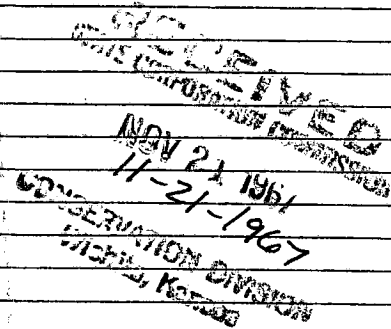 RECEIVED
STATE CORPORATION COMMISSION
NOV 21 1967
11-21-1967
CONSERVATION DIVISION
Wichita, Kansas